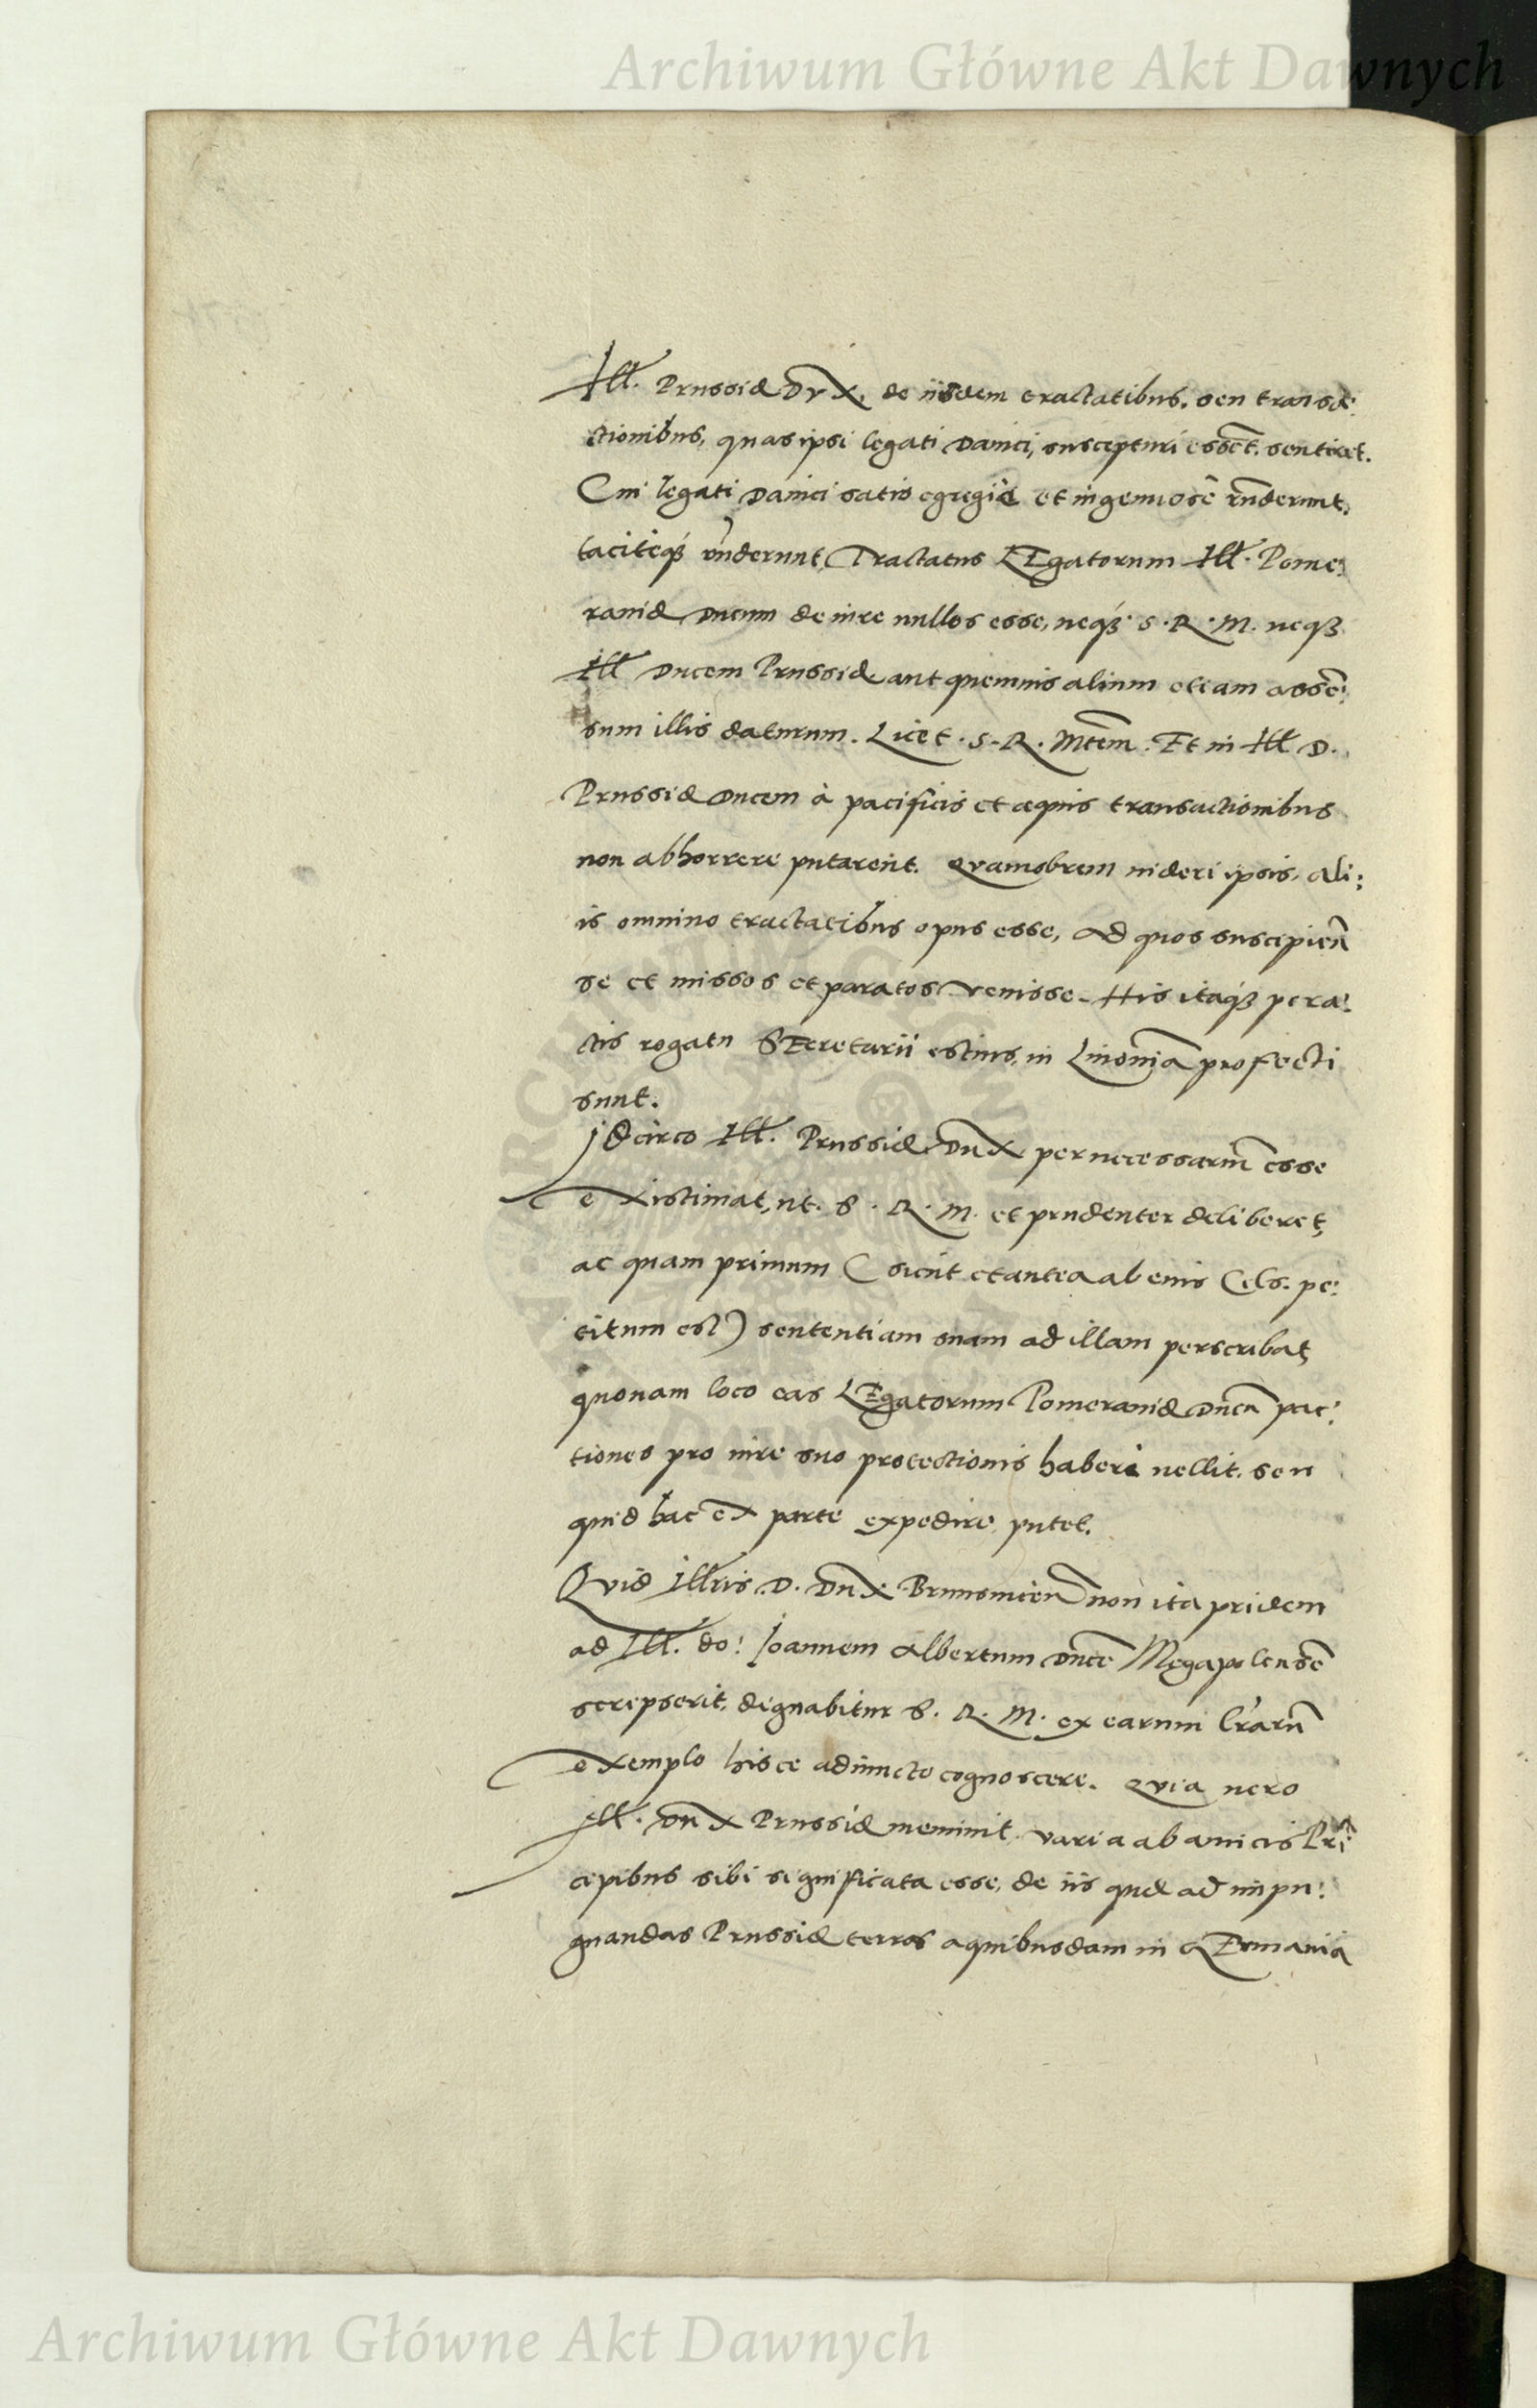 Archiwum Główne Akt Dawnych
Ill. Prussiae Dux, de iisdem tractatibus, seu transa:
ctionibus, quas ipsi legati Danici, suscepturi essēt, sentiret.
Cui legati Danici satis egregiè et ingeniosè rn̄derunt,
taciteq́ȝ rn̄derunt, Tractatus LEgatorum Ill. Pome:
raniae Ducum de iure nullos esse, neq́ȝ S. R. M. neqȝ
Ill Ducem Prussiae aut quemuis alium etiam assē:
sum illis daturum. Licet S. R. Mtem̄. Et in Ill D.
Prussiae Ducem à pacificis et aequis transactionibus
non abhorrere putarent. Quamobrem uideri ipsis, ali:
is omnino tractatibus opus esse, ad quos suscipien̄
se et missos et paratos venisse. His itaq́ȝ pera:
ctis rogatu SEcretarii estius, in Liuoniā profecti
sunt.
Idcirco Ill. Prussiae Dux pernecessariū esse
existimat, ut S. R. M. et prudenter deliberet,
ac quam primum (sicut et antea ab eius Cels. pe:
titum est) sententiam suam ad illam perscribat,
quonam loco eas LEgatorum Pomeraniae Ducū pac:
tiones pro iure suo protectionis haberi uellit, seu
quid hac ex parte expedire putet.
Quid Illris D. Dux Brunsuicen̄ non ita pridem
ad Ill. do: Ioannem Albertum Ducē Megapolensē
scripserit, dignabitur S. R. M. ex earum lr̄arū
exemplo hisce adiuncto cognoscere. Quia uero
Ill. Dux Prussiae meminit varia ab amicis Prī
cipibus sibi significata esse, de iis quae ad impu:
gnandas Prussiae terras a quibusdam in GErmania
Archiwum Główne Akt Dawnych